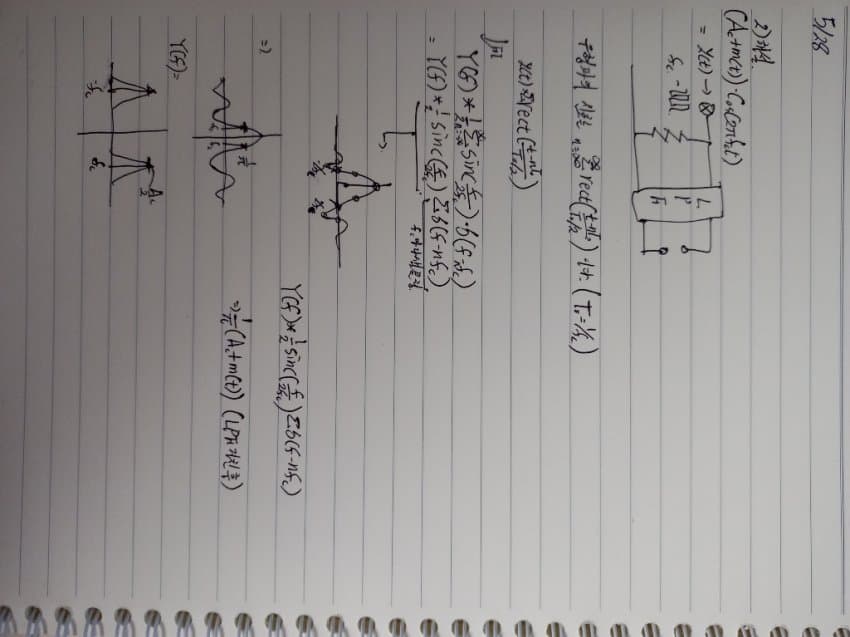 5/28
2) 해설
(Ac+m(t))·Cos(2πfct)
= x(t) → ⊗
fc
L
P
F
구형파의 신호는 Σ rect((t-nT₀)/(T₀/2)) 이다. (T₀=1/fc)
x(t) Σrect((t-nT₀)/(T₀/2))
Y(f) * ½ Σ sinc(f/2fc)·δ(f-nfc)
= Y(f) * ½ sinc(f/2fc) Σδ(f-nfc)
Y(f) * ½ sinc(f/2fc) Σδ(f-nfc)
⇒
1/π
⇒ 1/π (Ac+m(t)) (LPF 거친 후)
Y(f)=
Ac/2
-fc
fc